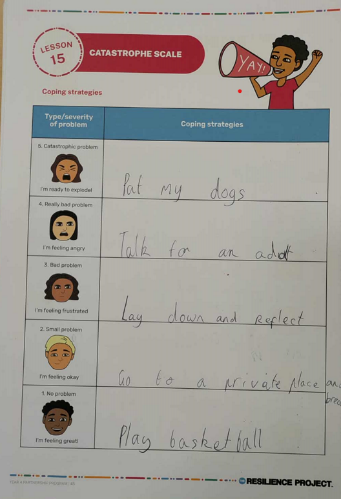 LESSON
15
CATASTROPHE SCALE
YAY!
Coping strategies
Type/severity
of problem
Coping strategies
5. Catastrophic problem
I'm ready to explode!
Pat my dogs
4. Really bad problem
I'm feeling angry
Talk for an adot
3. Bad problem
I'm feeling frustrated
Lay down and Reflect
2. Small problem
I'm feeling okay
Go to a private place and
1. No problem
I'm feeling great!
Play basketfall
© RESILIENCE PROJECT.